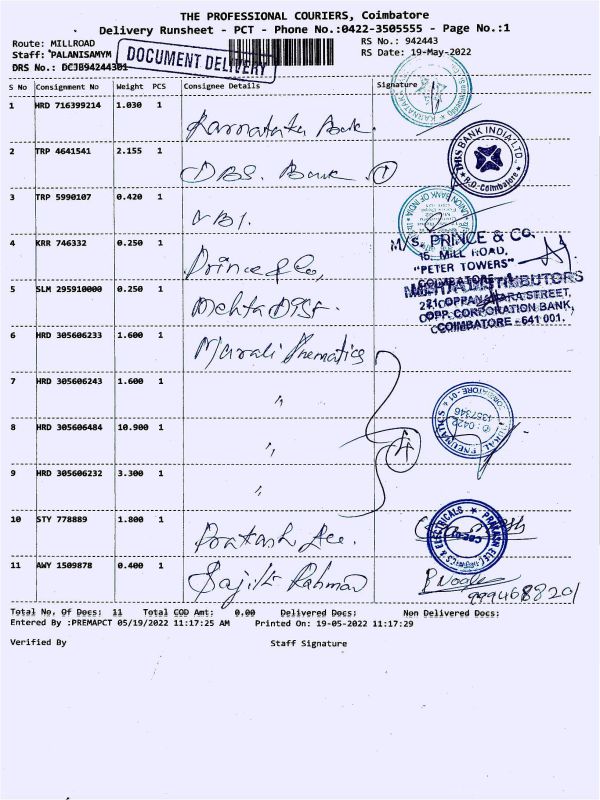 THE PROFESSIONAL COURIERS, Coimbatore
Delivery Runsheet - PCT - Phone No.:0422-3505555 - Page No.:1
Route: MILLROAD
RS No.: 942443
Staff: PALANISAMYM
RS Date: 19-May-2022
DRS No.: DCJB94244301
DOCUMENT DELIVERY
S No Consignment No Weight PCS Consignee Details Signature
1 HRD 716399214 1.030 1 Karnataka Bank
2 TRP 4641541 2.155 1 DBS. Bank 1
DBS BANK INDIA LTD.
Coimbatore
3 TRP 5990107 0.420 1 UBI.
UNION BANK OF INDIA
4 KRR 746332 0.250 1 Prince & Co,
M/S. PRINCE & CO.
15, MILL ROAD,
"PETER TOWERS"
COIMBATORE - 1
5 SLM 295910000 0.250 1 Mehta Dist.
MEHTA DISTRIBUTORS
221, OPPANAKARA STREET,
OPP. CORPORATION BANK,
COIMBATORE - 641 001.
6 HRD 305606233 1.600 1 Murali Pnematics
7 HRD 305606243 1.600 1 "
8 HRD 305606484 10.900 1 "
4
0422
1357346
9 HRD 305606232 3.300 1 "
10 STY 778889 1.800 1 Prakash Ele.
11 AWY 1509878 0.400 1 Sajith Rahman
9994688201
Total No. Of Docs: 11 Total COD Amt: 0.00 Delivered Docs: Non Delivered Docs:
Entered By :PREMAPCT 05/19/2022 11:17:25 AM Printed On: 19-05-2022 11:17:29
Verified By Staff Signature